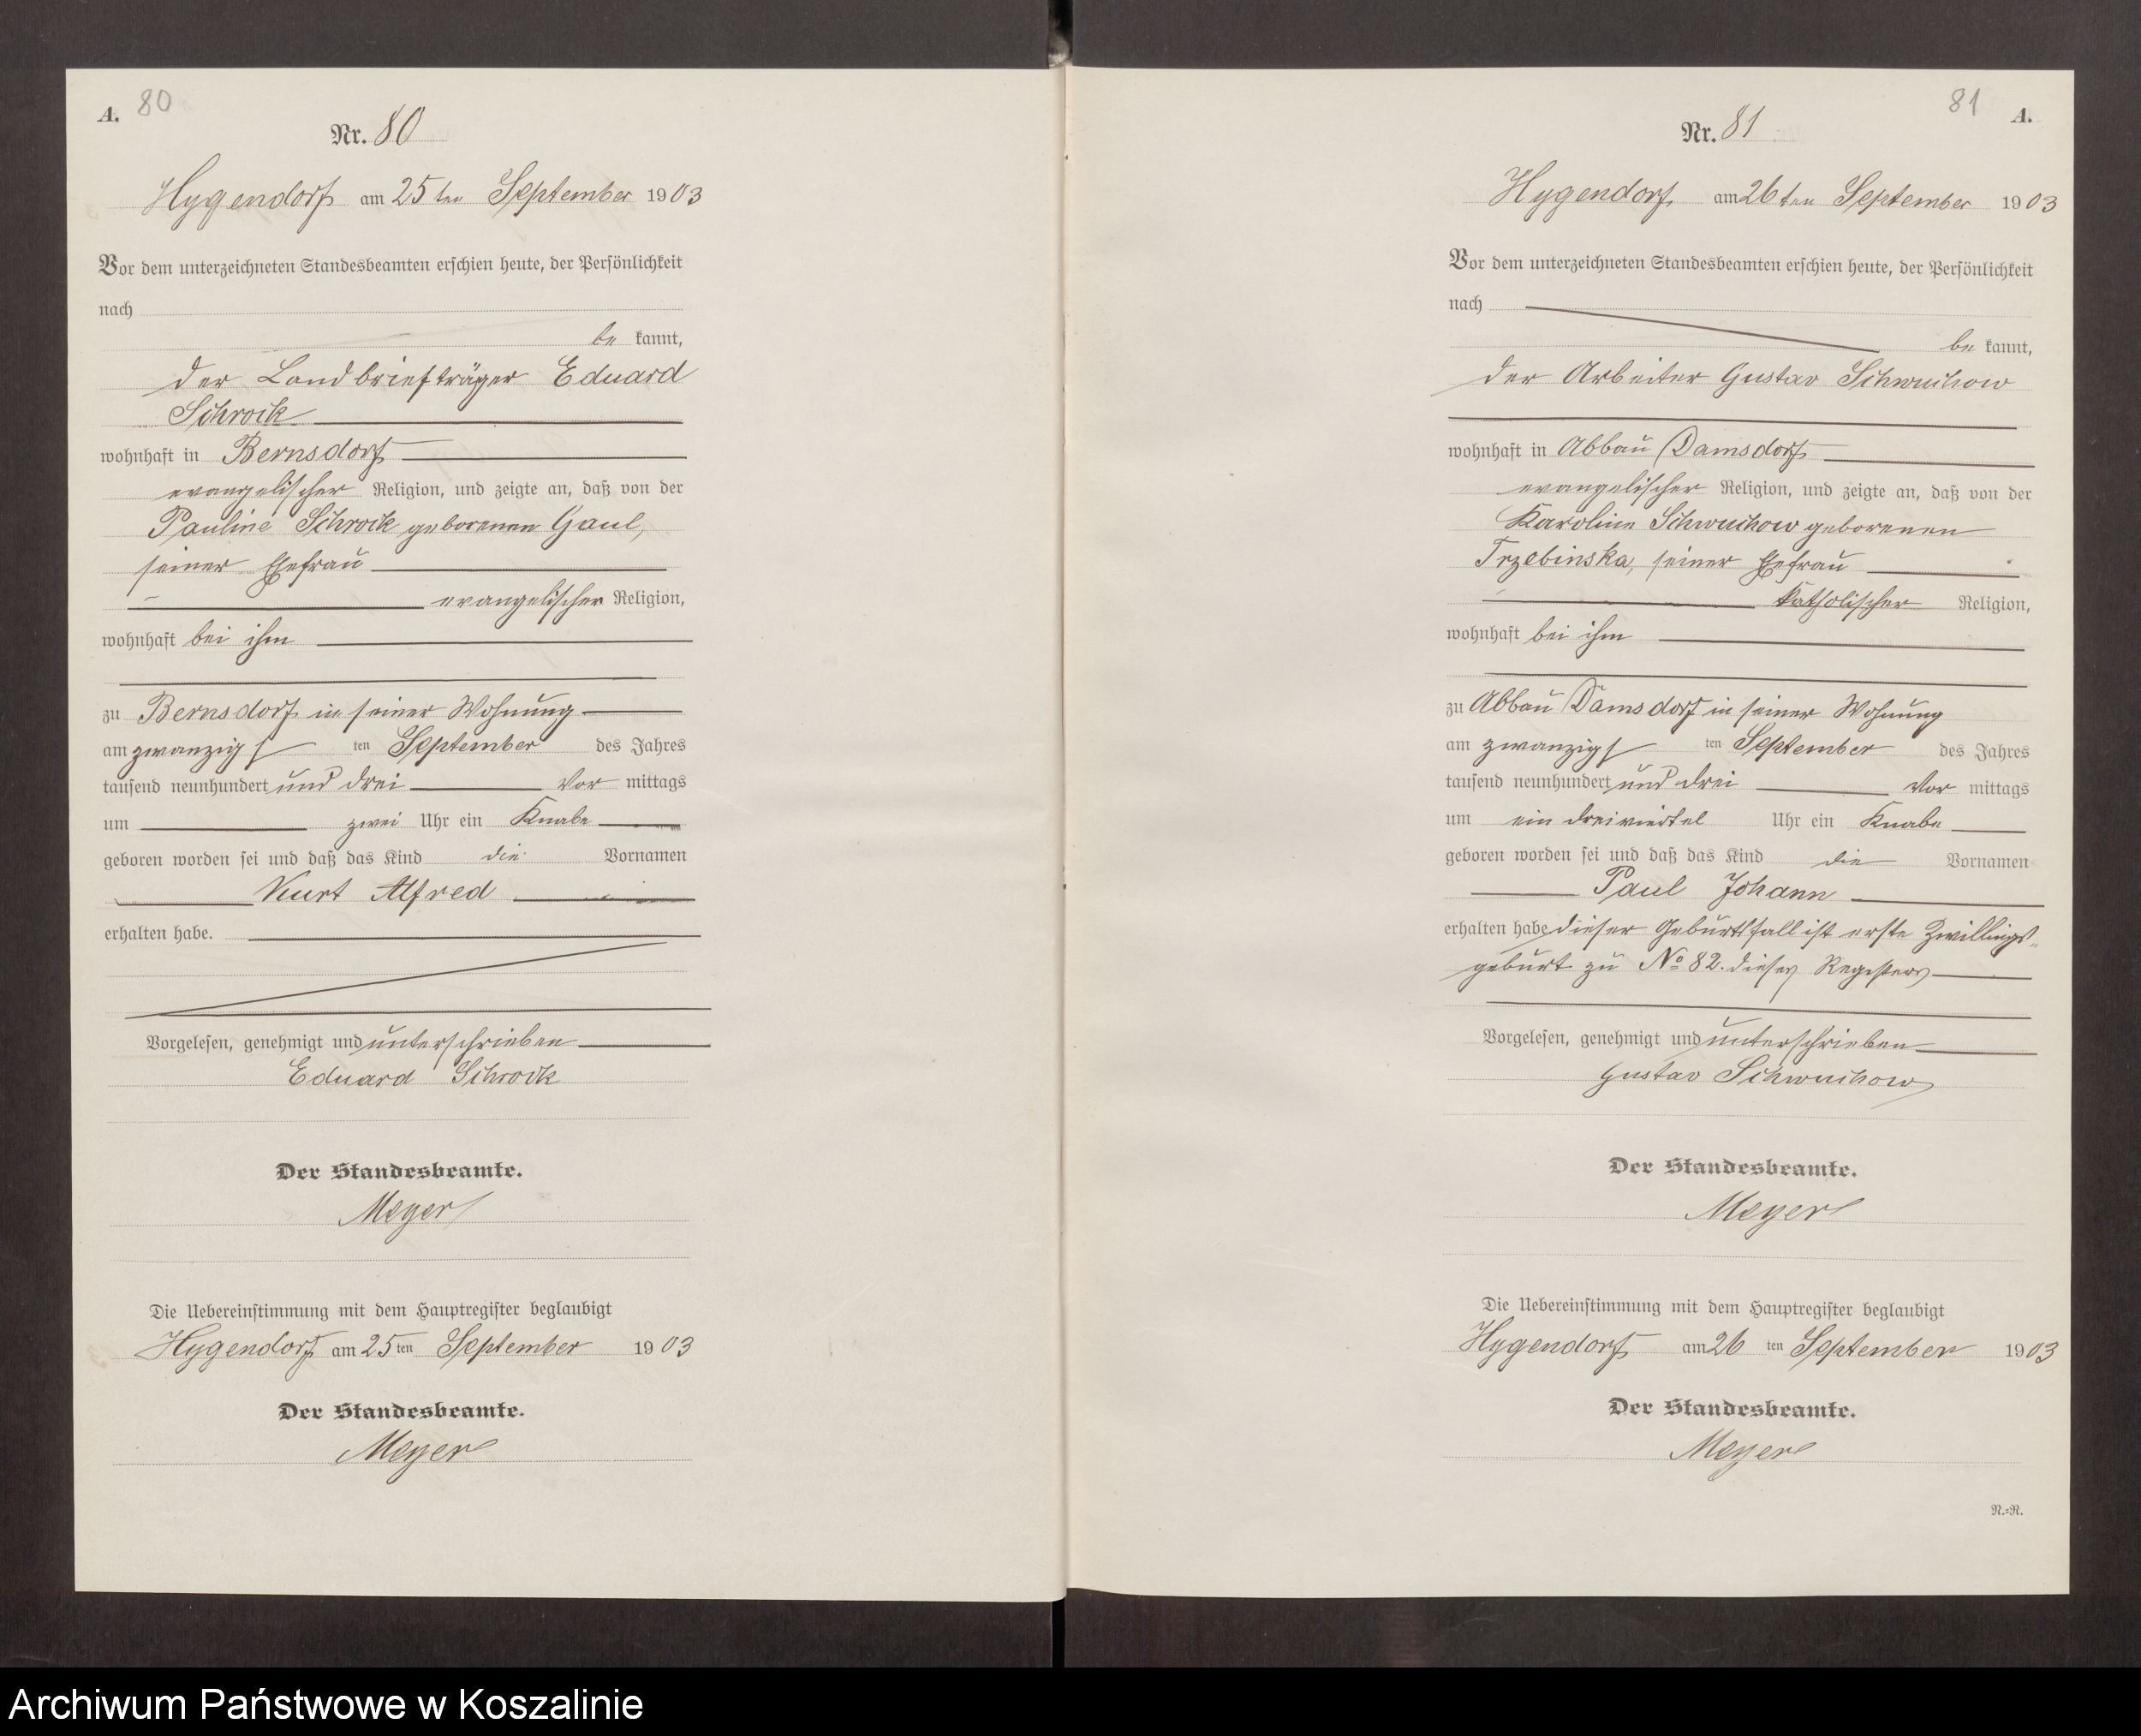 A. 80
Nr. 80
Hygendorf am 25 ten September 1903
Vor dem unterzeichneten Standesbeamten erschien heute, der Persönlichkeit
nach
be kannt,
der Landbriefträger Eduard
Schrock
wohnhaft in Bernsdorf
evangelischer Religion, und zeigte an, daß von der
Pauline Schrock geborenen Gaul,
seiner Ehefrau
evangelischer Religion,
wohnhaft bei ihm
zu Bernsdorf in seiner Wohnung
am zwanzigs ten September des Jahres
tausend neunhundert und drei Vor mittags
um zwei Uhr ein Knabe
geboren worden sei und daß das Kind die Vornamen
Kurt Alfred
erhalten habe.
Vorgelesen, genehmigt und unterschrieben
Eduard Schrock
Der Standesbeamte.
Meyer
Die Uebereinstimmung mit dem Hauptregister beglaubigt
Hygendorf am 25 ten September 1903
Der Standesbeamte.
Meyer
81 A.
Nr. 81
Hygendorf am 26 ten September 1903
Vor dem unterzeichneten Standesbeamten erschien heute, der Persönlichkeit
nach
be kannt,
der Arbeiter Gustav Schwuchow
wohnhaft in Abbau Damsdorf
evangelischer Religion, und zeigte an, daß von der
Karoline Schwuchow geborenen
Trzebinska, seiner Ehefrau
katholischer Religion,
wohnhaft bei ihm
zu Abbau Damsdorf in seiner Wohnung
am zwanzigs ten September des Jahres
tausend neunhundert und drei Vor mittags
um ein dreiviertel Uhr ein Knabe
geboren worden sei und daß das Kind die Vornamen
Paul Johann
erhalten habe, dieser Geburtsfall ist erste Zwillings-
geburt zu No 82. dieses Registers
Vorgelesen, genehmigt und unterschrieben
Gustav Schwuchow
Der Standesbeamte.
Meyer
Die Uebereinstimmung mit dem Hauptregister beglaubigt
Hygendorf am 26 ten September 1903
Der Standesbeamte.
Meyer
N.=R.
Archiwum Państwowe w Koszalinie